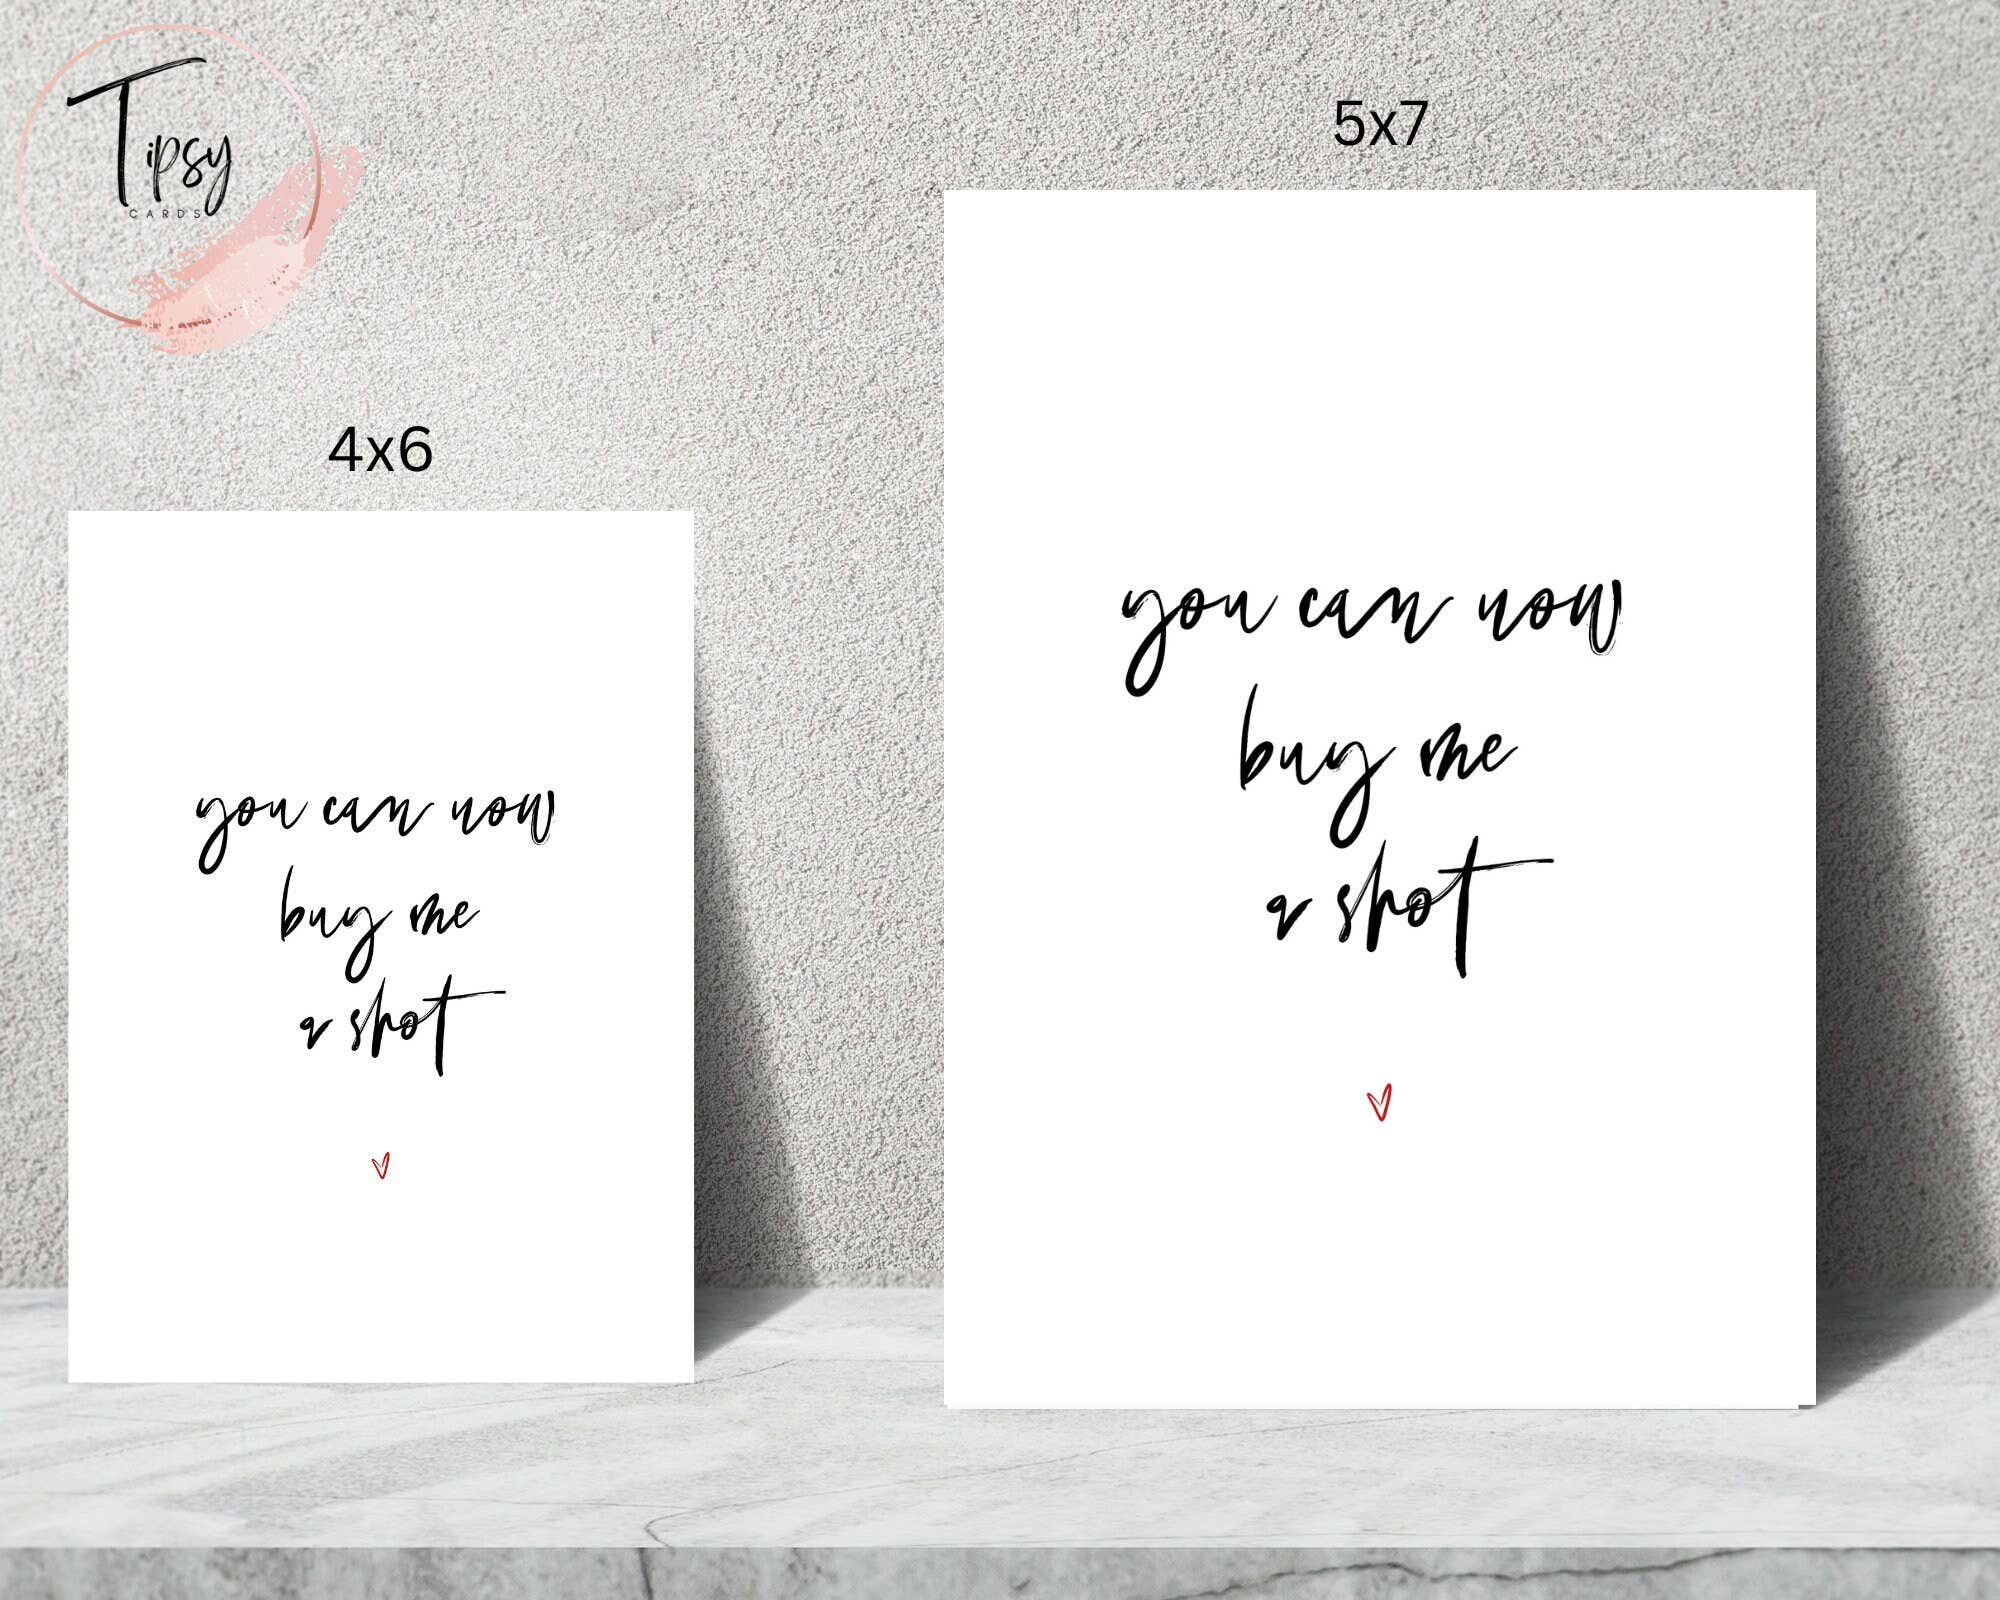 Tipsy
CARDS
4x6
you can now
buy me
a shot
5x7
you can now
buy me
a shot